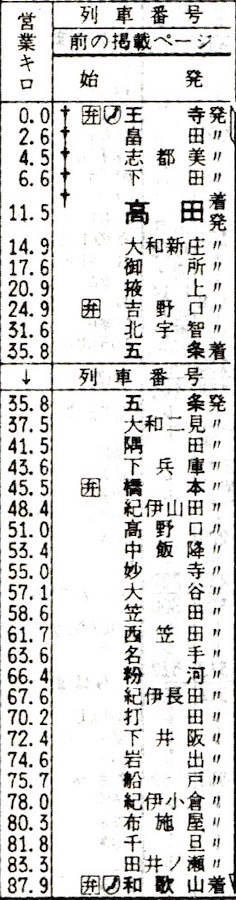 営業キロ 列車番号
前の掲載ページ
始発
0.0 弁 王寺 発
2.6 畠田 〃
4.5 志都美 〃
6.6 下田 〃
11.5 高田 着発
14.9 大和新庄 〃
17.6 御所 〃
20.9 掖上 〃
24.9 弁 吉野口 〃
31.6 北宇智 〃
35.8 五条 着
↓ 列車番号
35.8 五条 発
37.5 大和二見 〃
41.5 隅田 〃
43.6 下兵庫 〃
45.5 弁 橋本 〃
48.4 紀伊山田 〃
51.0 高野口 〃
53.4 中飯降 〃
55.0 妙寺 〃
57.1 大谷 〃
58.6 笠田 〃
61.7 西笠田 〃
63.6 名手 〃
66.4 粉河 〃
67.6 紀伊長田 〃
70.2 打田 〃
72.4 下井阪 〃
74.6 岩出 〃
75.7 船戸 〃
78.0 紀伊小倉 〃
80.3 布施屋 〃
81.8 千旦 〃
83.3 田井ノ瀬 〃
87.9 弁 和歌山 着